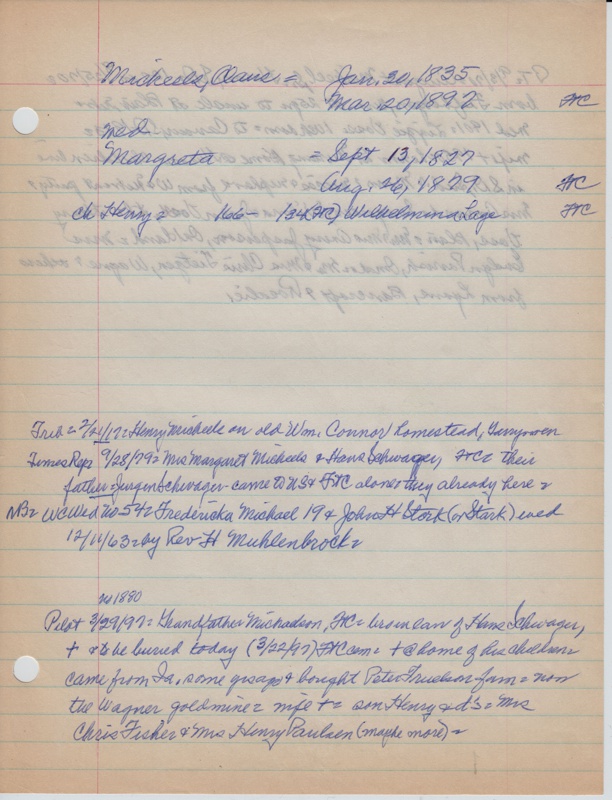 Micheels, Claus = Jan. 20, 1835
Mar. 20, 1897 FtC
wed
Margreta = Sept 13, 1827
Aug. 26, 1879 FtC
ch Henry = 166 - 134 (FtC) Wilhelmina Lage FtC
Trib = 2/21/17 = Henry Micheels on old Wm. Connor homestead,
Times Rep 9/28/79 = Mrs Margaret Micheels & Hans Schwager, FtC = their
father Jurgen Schwager - came to US & FtC alone they already here =
NB = WCWed No 54 = Fredericka Michael 19 & John H Stork (or Stark) wed
12/11/63 = by Rev H Muhlenbrock =
no 1880
Pilot 3/29/97 = Grandfather Michaelson, FtC = bro in law of Hans Schwager,
+ & to be buried today (3/22/97) FtC cem = + @ home of his children =
came from Ia, some yrs ago & bought Peter Truelson farm = now
the Wagner goldmine = wife + = son Henry & d's = Mrs
Chris Fisher & Mrs Henry Paulsen (maybe more) =